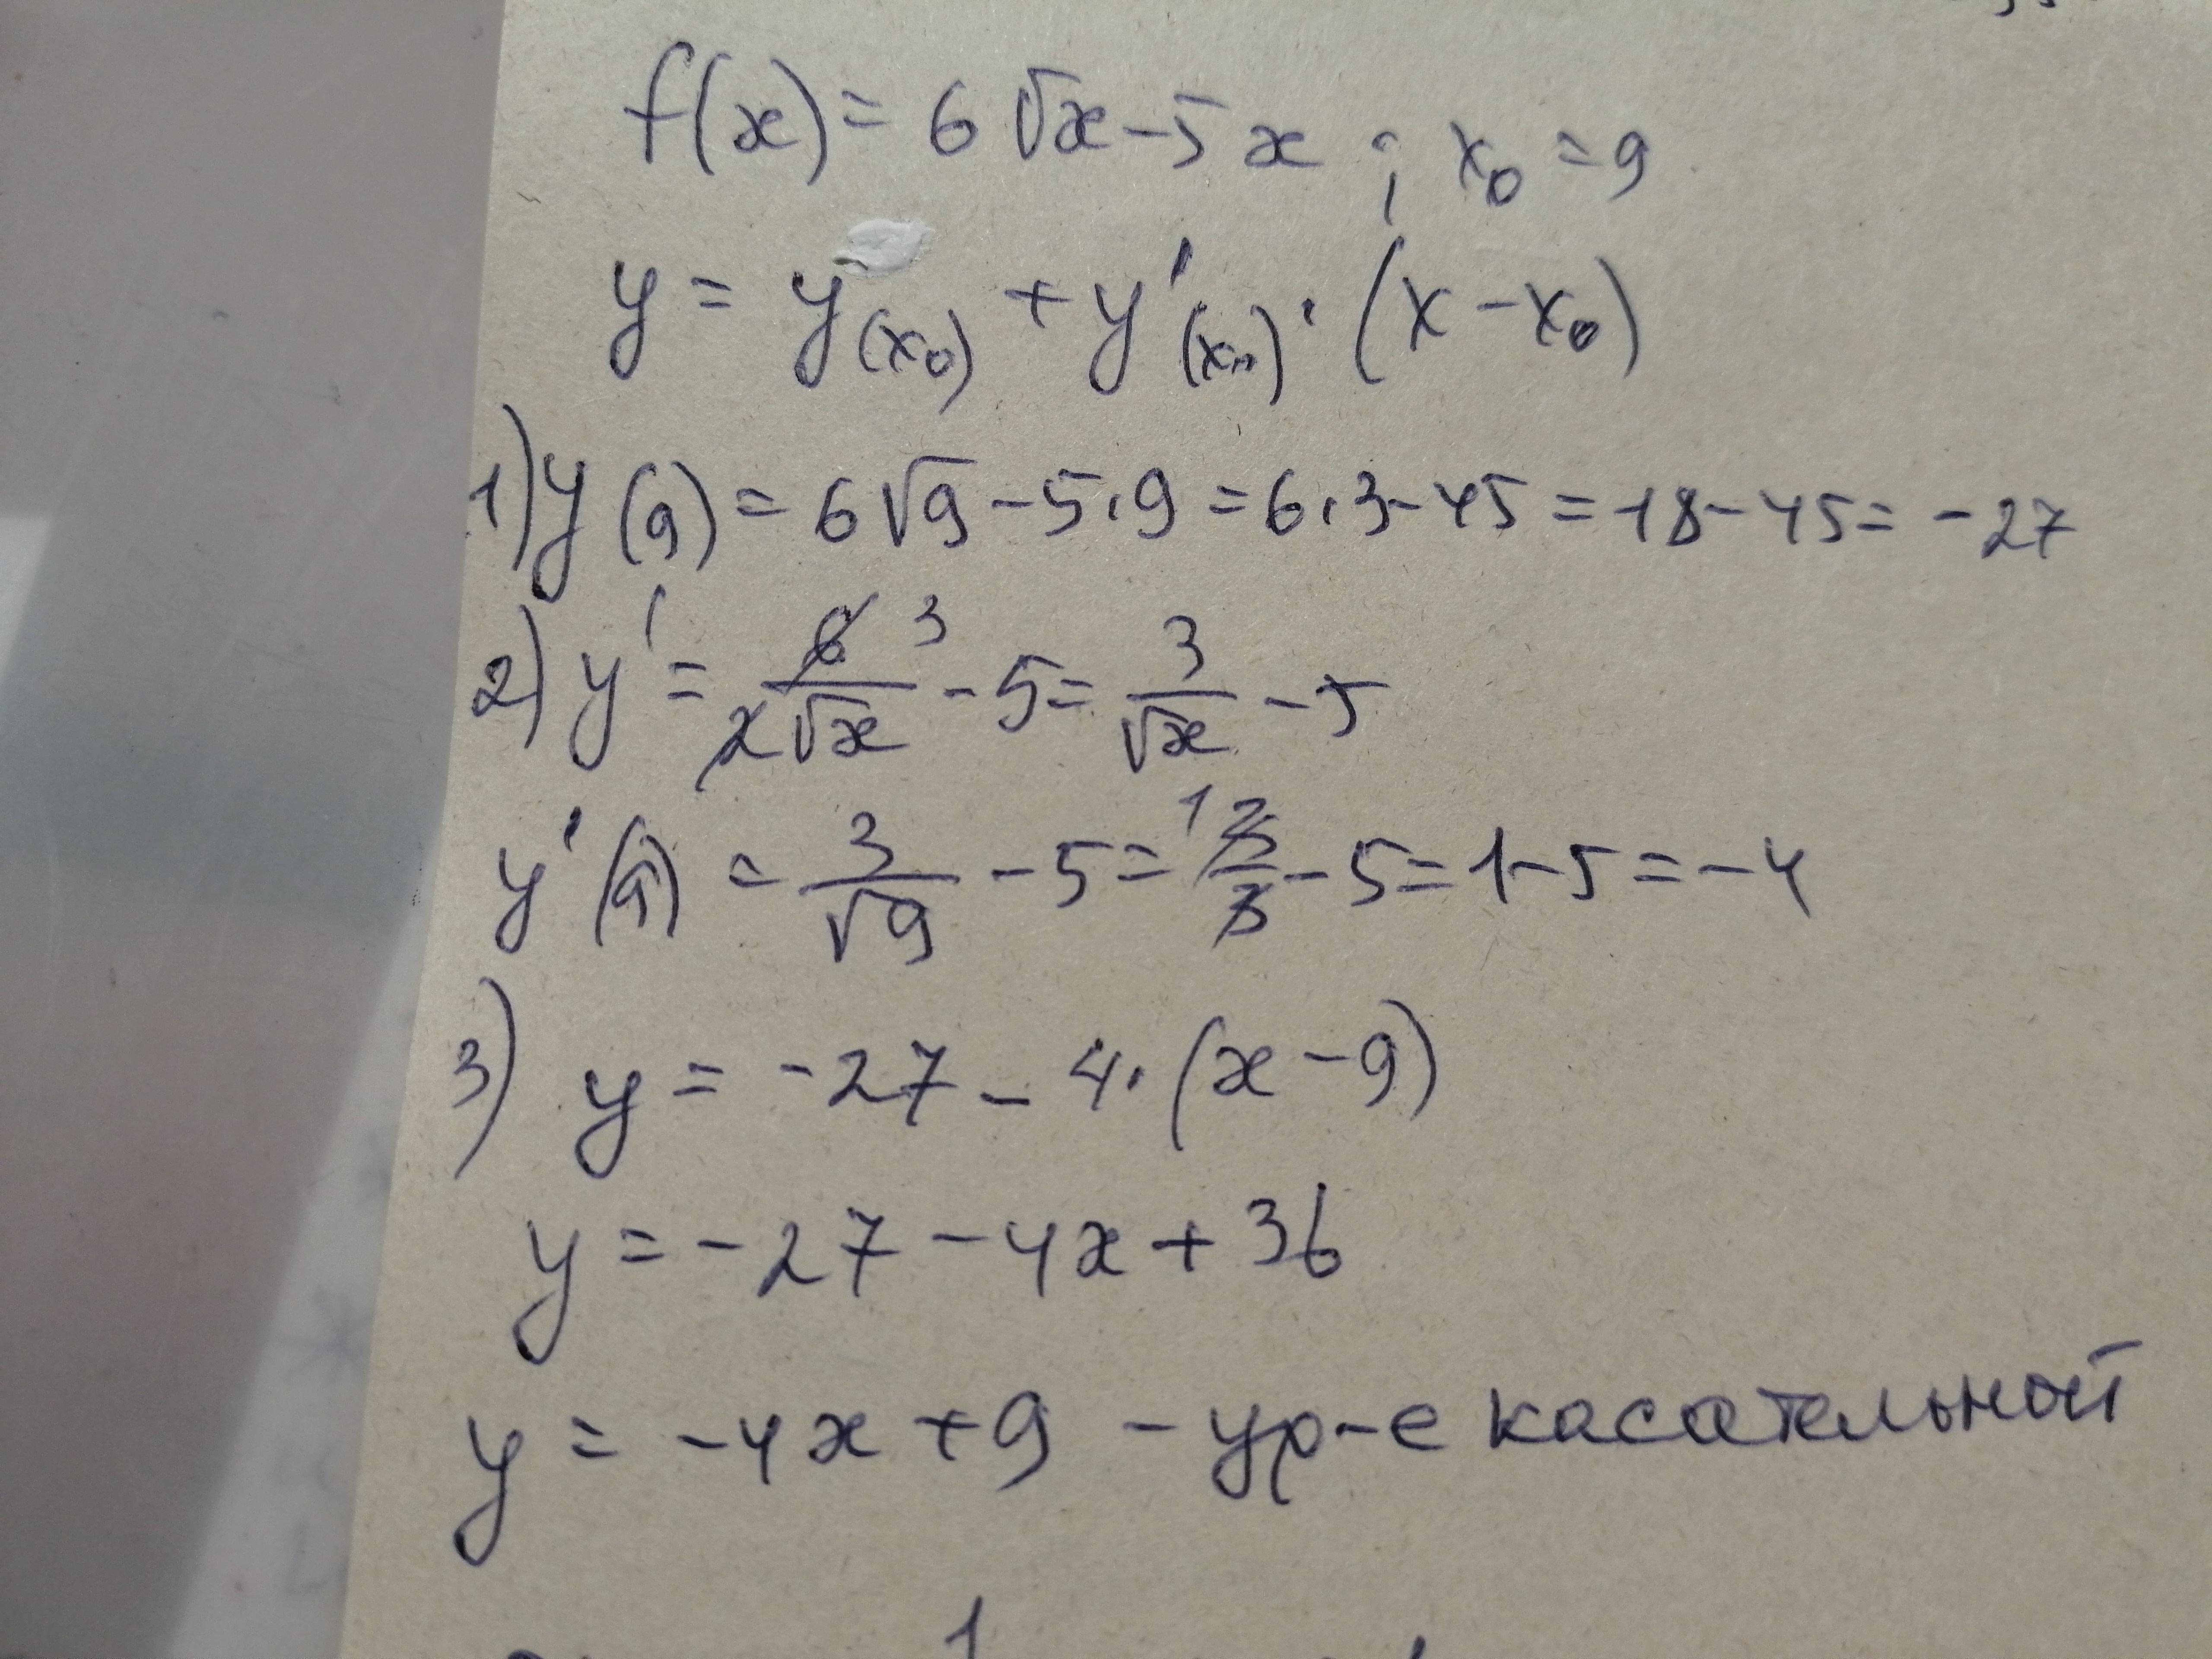 f(x) = 6√x - 5x ; x₀ = 9
y = y(x₀) + y'(x₀) · (x - x₀)
1) y(9) = 6√9 - 5·9 = 6·3 - 45 = 18 - 45 = -27
2) y' = 6 3/2√x - 5 = 3/√x - 5
y'(9) = 3/√9 - 5 = 1 3/3 - 5 = 1 - 5 = -4
3) y = -27 - 4·(x - 9)
y = -27 - 4x + 36
y = -4x + 9 - ур-е касательной
1